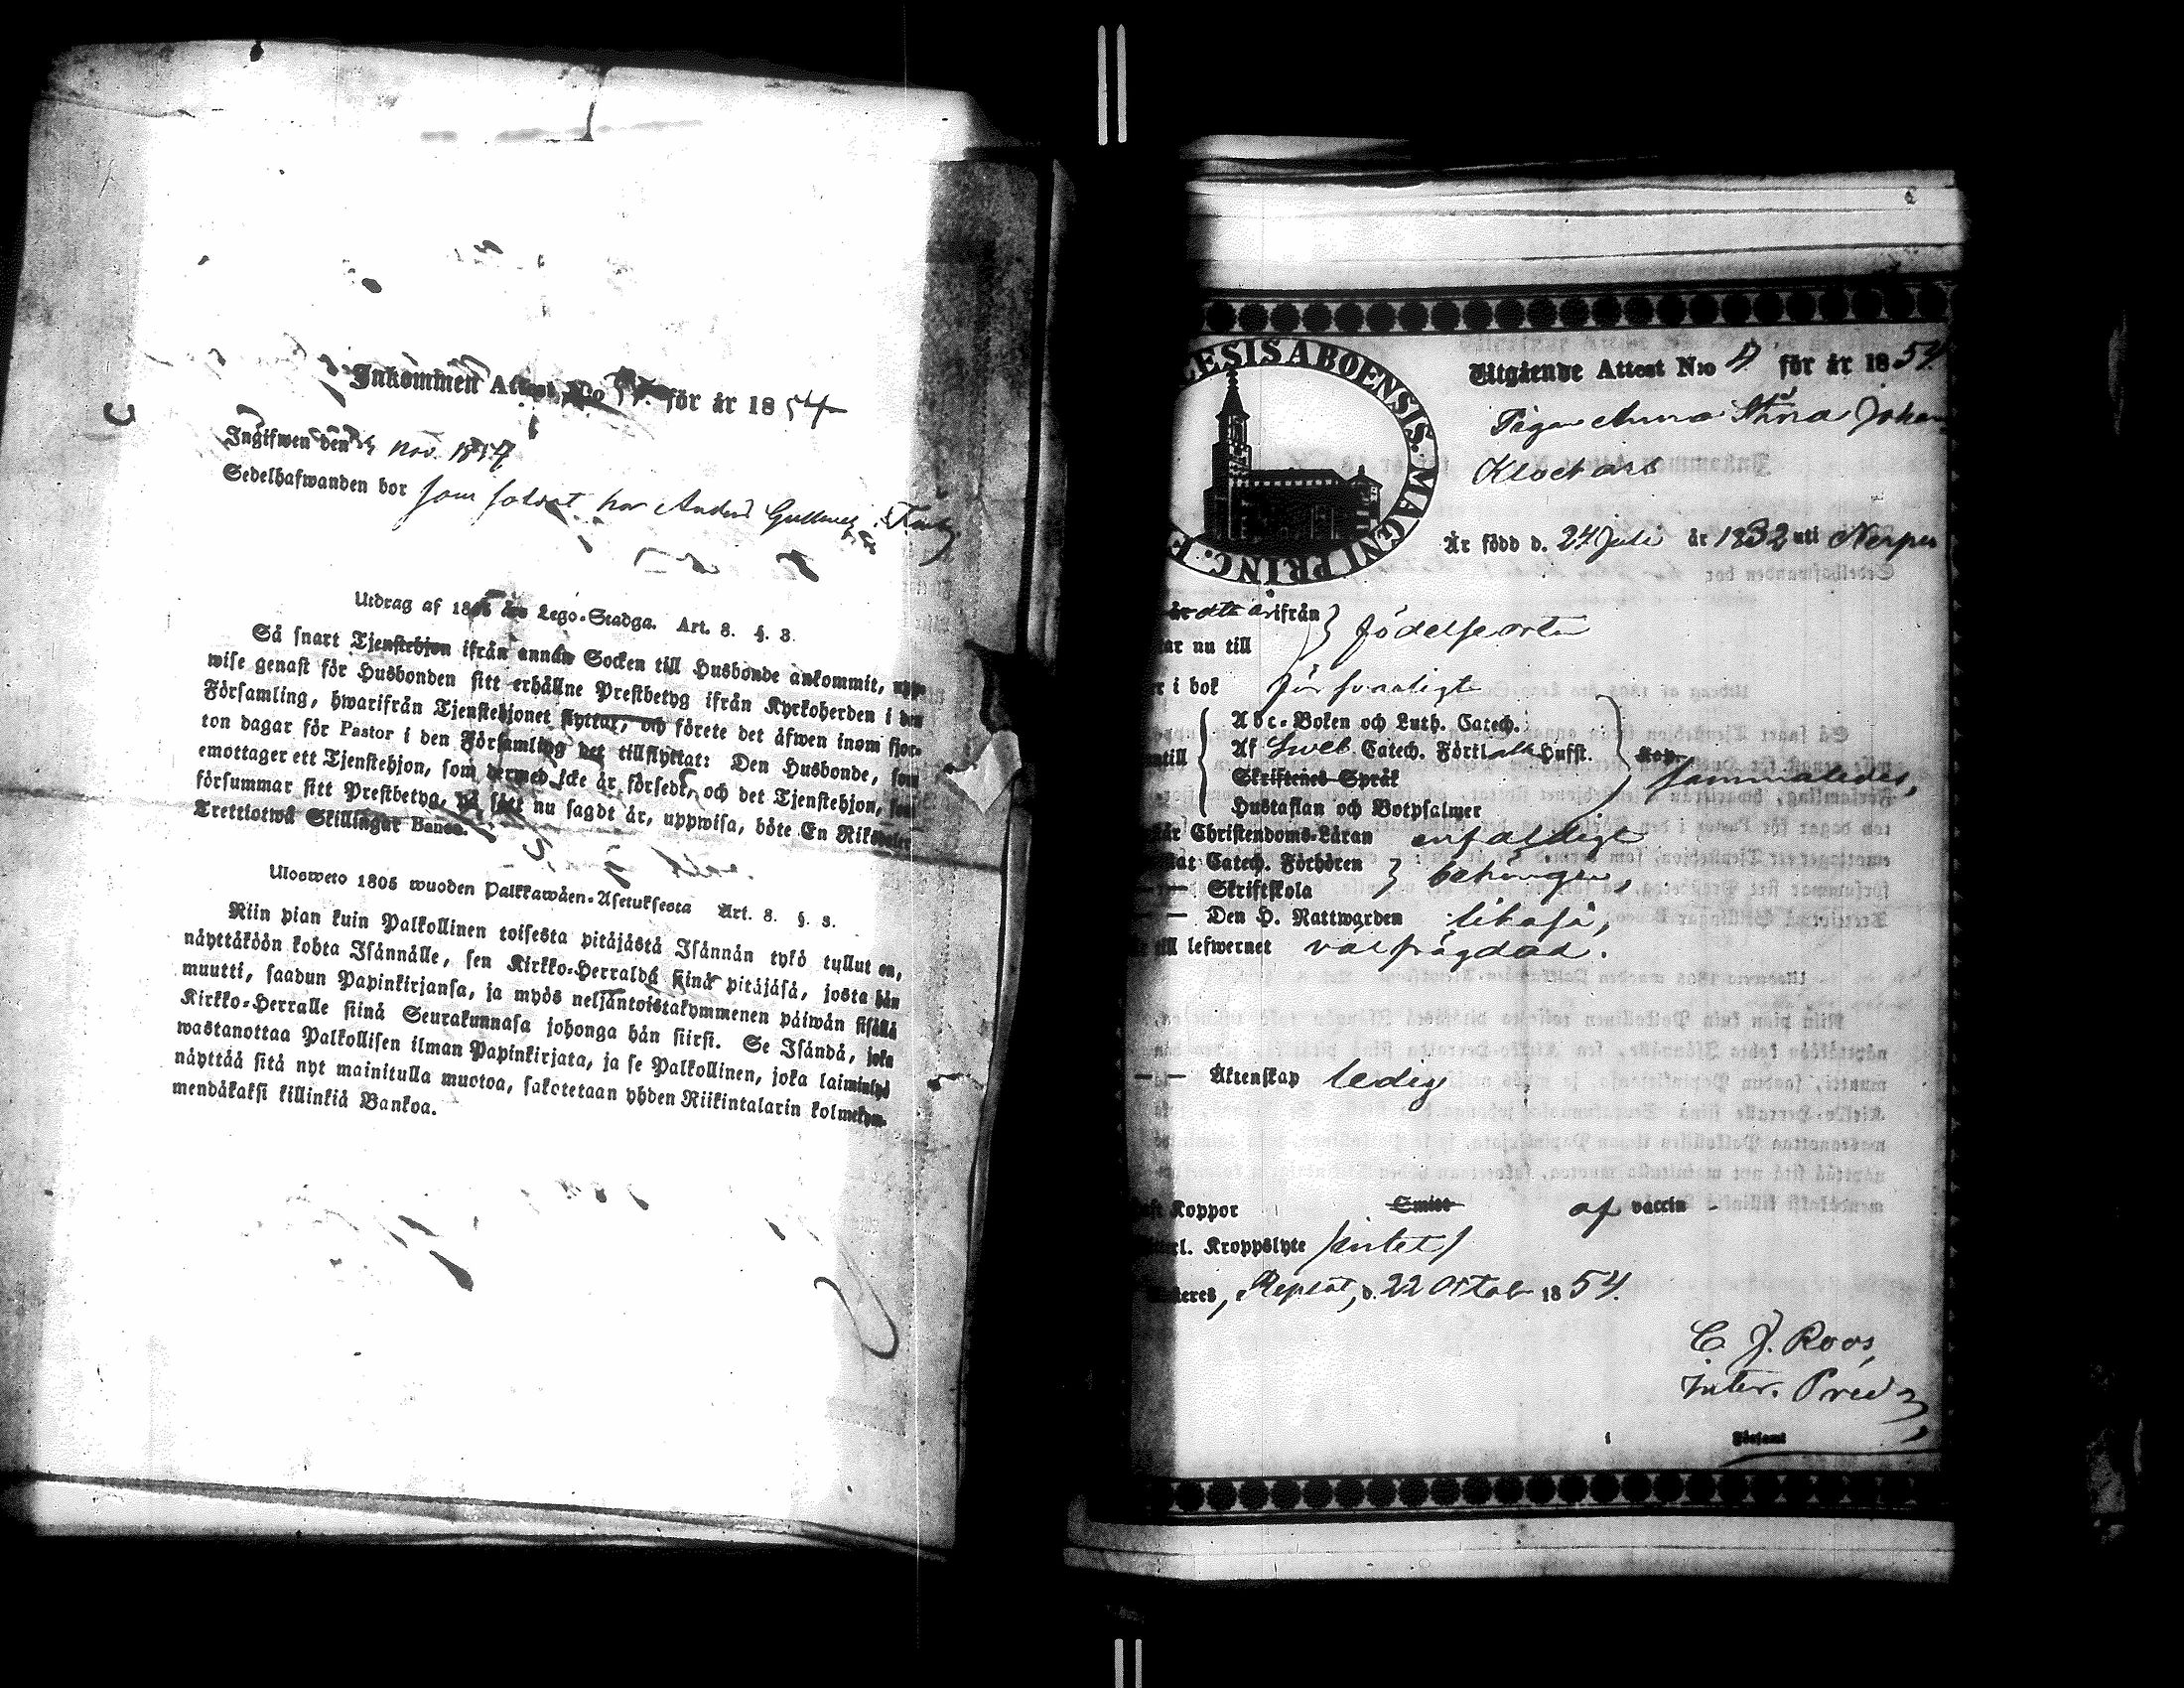 Inkommen Attest N:o för år 1854
Ingifwen den nov. 1854
Sedelhafwanden bor som soldat hos Anders
Utdrag af 1805 års Lego-Stadga. Art. 8. §. 3.
Så snart Tjenstehjon ifrån annan Socken till Husbonde ankommit, upp-
wise genast för Husbonden sitt erhållne Prestbetyg ifrån Kyrkoherden i den
Församling, hwarifrån Tjenstehjonet flyttat, och förete det åfwen inom fjor-
ton dagar för Pastor i den Församling det tillflyttat: Den Husbonde, som
emottager ett Tjenstehjon, som dermed icke år försedt, och det Tjenstehjon, som
försummar sitt Prestbetyg, på sätt nu sagdt år, uppwisa, böte En Riksdaler
Trettiotwå Skillingar Banco.
Ulosweto 1805 wuoden Palkkawåen-Asetuksesta Art. 8. §. 3.
Niin pian kuin Palkollinen toisesta pitåjåstå Isånnån tykö tullut on,
nåyttåköön kohta Isånnålle, sen Kirkko-Herralda siinå pitåjåså, josta hån
muutti, saadun Papinkirjansa, ja myös neljåntoistakymmenen påiwån sisållå
Kirkko-Herralle siinå Seurakunnasa johonga hån siirsi. Se Isåndå, joka
wastanottaa Palkollisen ilman Papinkirjata, ja se Palkollinen, joka laiminlyö
nåyttåå sitå nyt mainitulla muotoa, sakotetaan yhden Riikintalarin kolmekym-
mendåkaksi killinkiå Bankoa.
LESIS ABOENSIS. MAGNI PRINC. F
Utgående Attest N:o 4 för år 1854
Pigan Anna Stina Johan
Klockars
År född d. 24 Juli år 1832 uti Nerpes
ifrån
ar nu till födelseorten
r i bok försvarligt
Abc-Boken och Luth. Catech.
antill Af Sweb. Catech. Förkl. Husst. Kop.
Skriftenes Språk sammaledes,
Hustaflan och Botpsalmer
Christendoms-Låran enfaldigt
Catech. Förhören
Skriftskola behörigen,
Den H. Nattwarden likaså,
till lefwernet välfrägdad.
Åktenskap ledig
Koppor Smitt af vaccin
Kroppslyte intet
d. 22 Octob 1854.
C. J. Roos,
Inter. Pred
i Församl